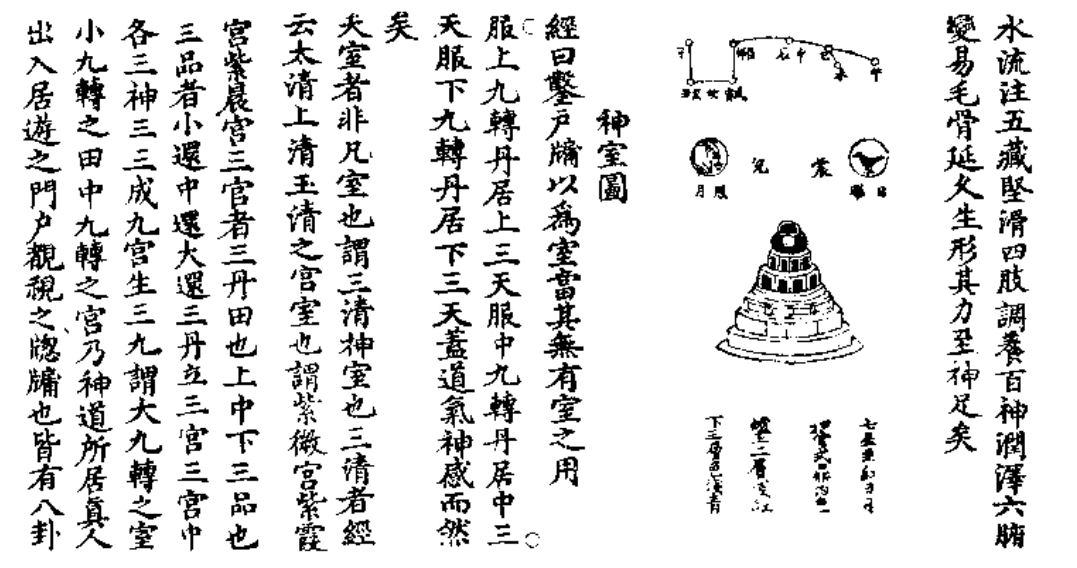 水流注五藏堅滑四肢調養百神潤澤六腑
變易毛骨延久生形其力至神足矣
日
月
震
兌
神室圖
經曰鑿戶牖以爲室當其無有室之用
服上九轉丹居上三天服中九轉丹居中三
天服下九轉丹居下三天蓋道氣神感而然
矣
天室者非凡室也謂三清神室也三清者經
云太清上清玉清之宮室也謂紫微宮紫霞
宮紫晨宮三官者三丹田也上中下三品也
三品者小還中還大還三丹立三宮三宮中
各三神三三成九宮生三九謂大九轉之室
小九轉之田中九轉之宮乃神道所居真人
出入居遊之門戶觀視之牕牖也皆有八卦